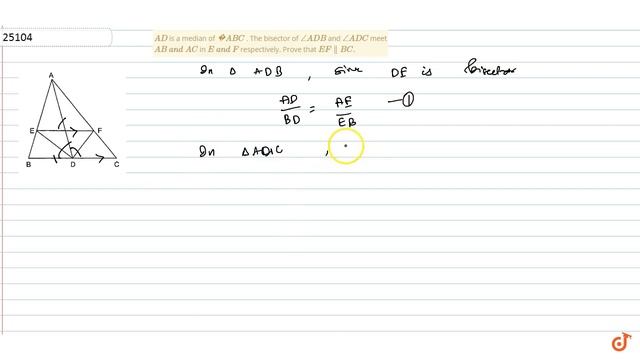 25104
AD is a median of �ABC . The bisector of ∠ADB and ∠ADC meet
AB and AC in E and F respectively. Prove that EF ∥ BC.
In Δ ADB , since DE is bisector
AD/BD = AE/EB —①
In ΔADC ,
A
E F
B D C